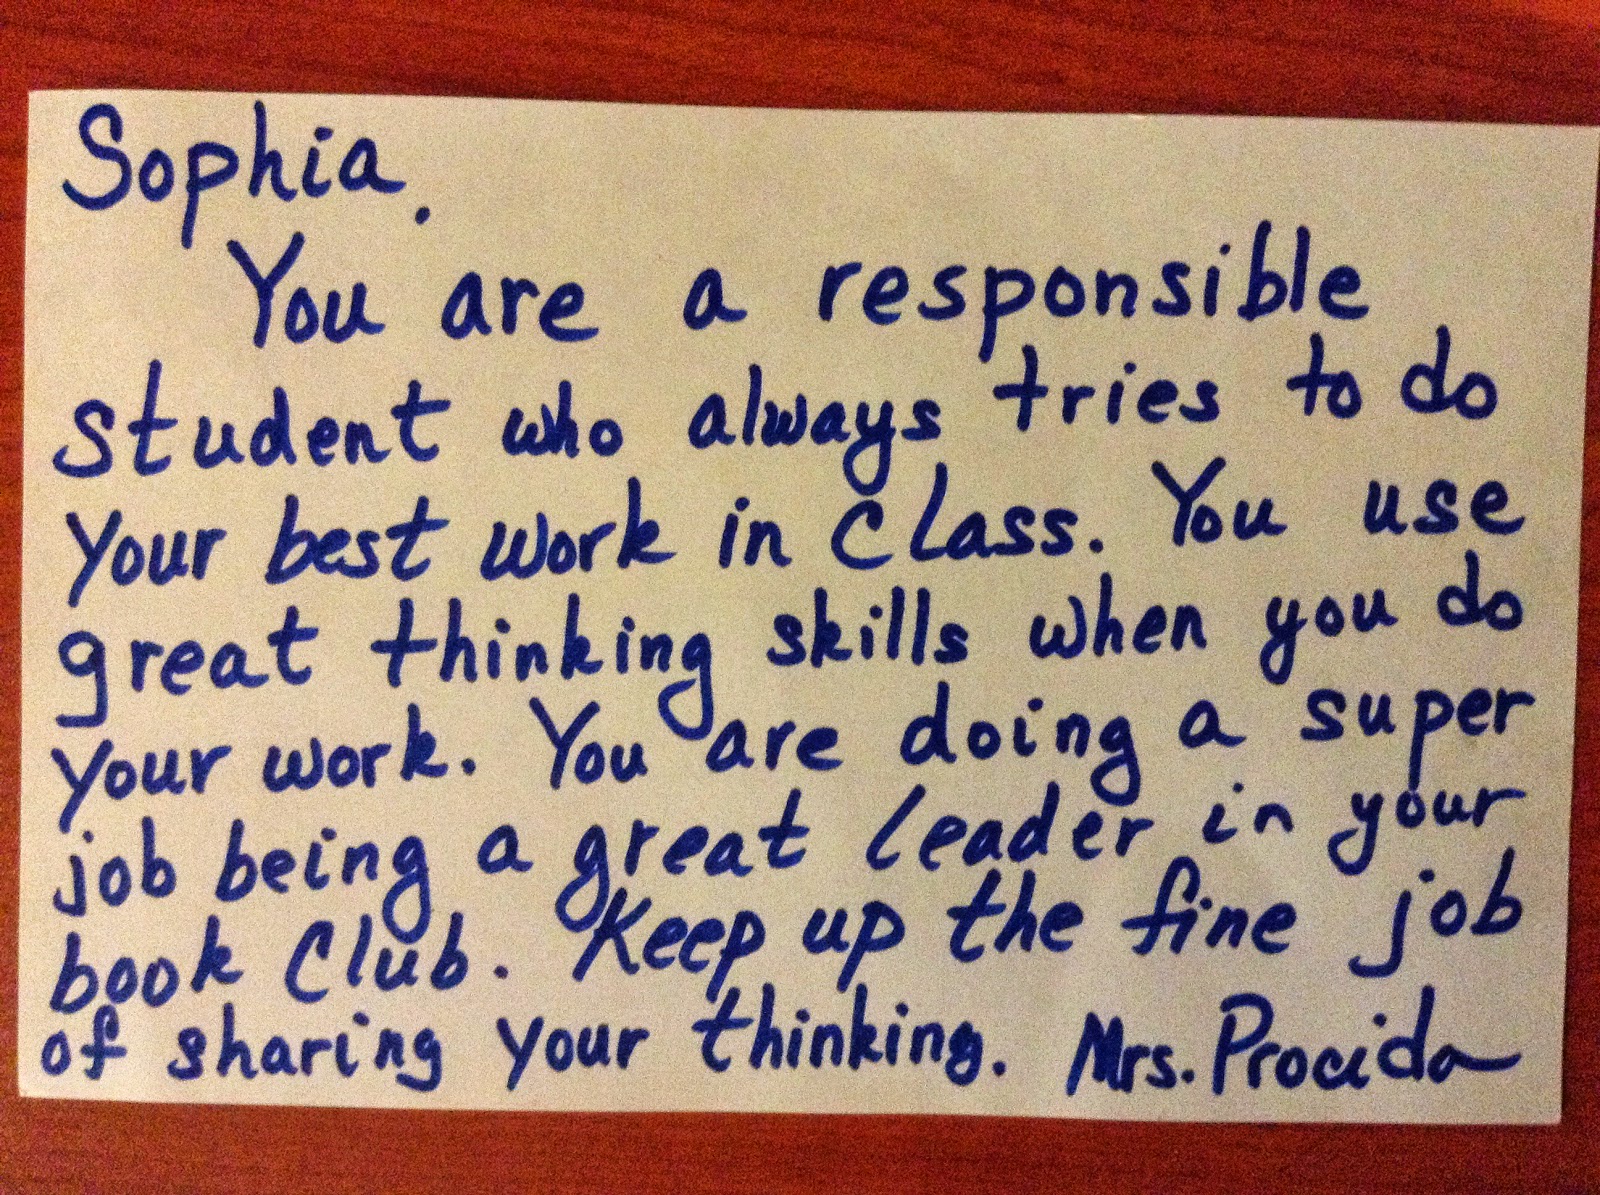 Sophia.
You are a responsible
student who always tries to do
your best work in class. You use
great thinking skills when you do
your work. You are doing a super
job being a great leader in your
book Club. Keep up the fine job
of sharing your thinking. Mrs. Procida